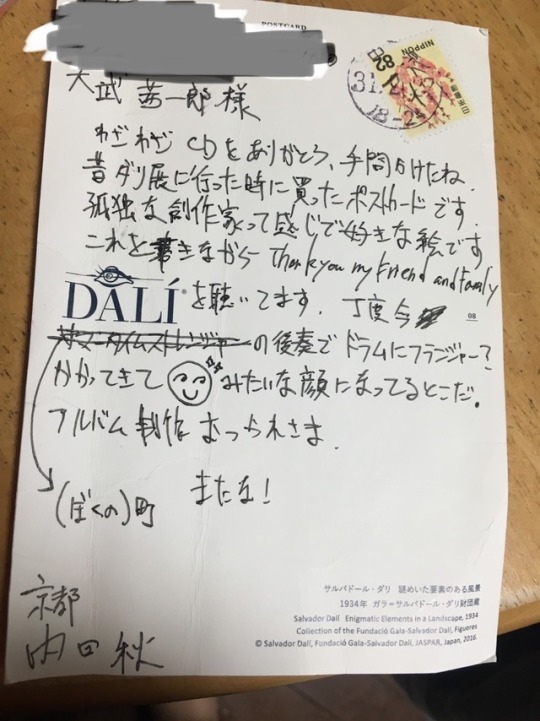 POSTCARD
大武 茜一郎 様
NIPPON
82
日本郵便
31
18-24
わざわざ CDをありがとう、手間かけたね.
昔ダリ展に行った時に買ったポストカードです.
孤独な創作家って感じで好きな絵です
これを書きながら Thank you my friend and family
DALÍ® を聴いてます. 丁度今
サマータイムストレンジャー の後奏で ドラムにフランジャー?
08
かかってきて みたいな顔になってるとこだ.
アルバム 制作 おつかれさま.
(ぼくの)町
またな!
京都
内田 秋
サルバドール・ダリ 謎めいた要素のある風景
1934年 ガラ=サルバドール・ダリ財団蔵
Salvador Dalí Enigmatic Elements in a Landscape, 1934
Collection of the Fundació Gala-Salvador Dalí, Figueres
© Salvador Dalí, Fundació Gala-Salvador Dalí, JASPAR, Japan, 2016.